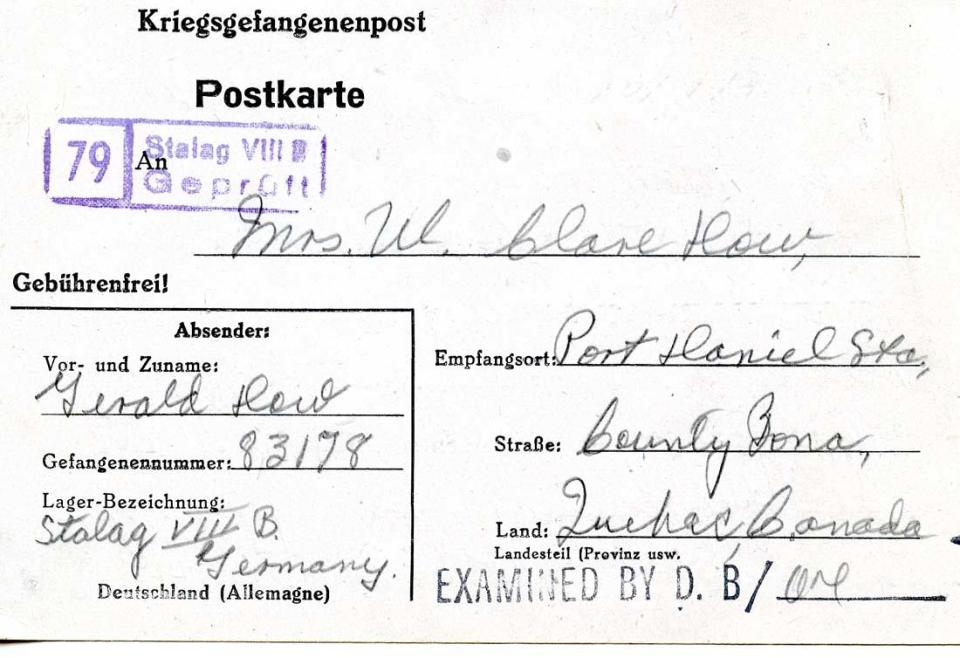 Kriegsgefangenenpost
Postkarte
79 Stalag VIII B
Geprüft
An
Mrs. W. Clare How,
Gebührenfrei!
Absender:
Vor- und Zuname:
Gerald How
Gefangenennummer: 83178
Lager-Bezeichnung:
Stalag VIII B.
Germany.
Deutschland (Allemagne)
Empfangsort: Port Daniel Sta.,
Straße: County Bona,
Land: Quebec, Canada
Landesteil (Provinz usw.
EXAMINED BY D. B/